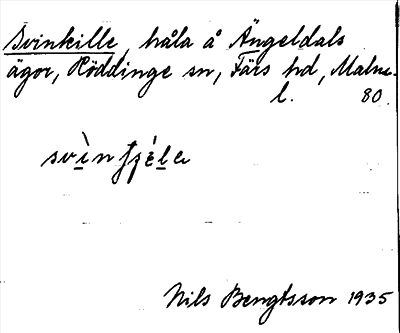 Svinkille, håla å Ängeldals
ägor, Röddinge sn, Färs hd, Malm.
l. 80.
svìnʃɟéle
Nils Bengtsson 1935